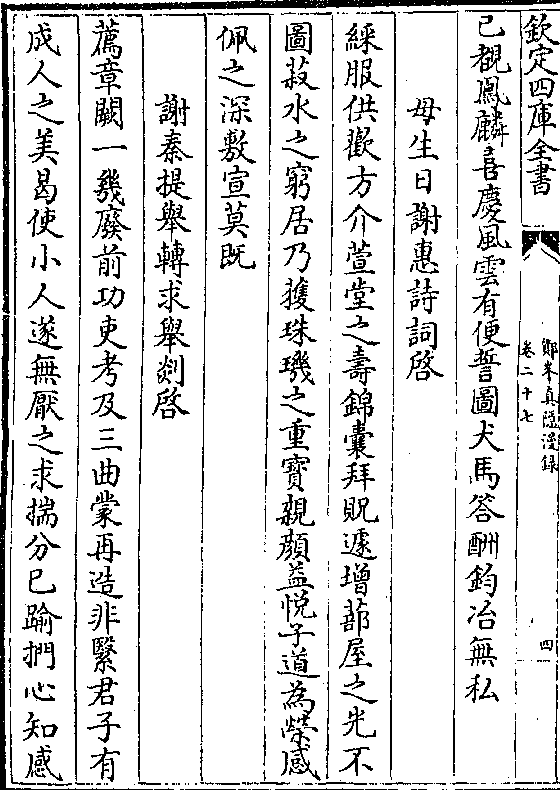 欽定四庫全書
鄮峰真隱漫録
卷二十七
四
已覩鳳麟喜慶風雲有便誓圖犬馬答酬鈞冶無私
母生日謝惠詩詞啓
綵服供歡方介萱堂之壽錦囊拜貺遽增蔀屋之光不
圖菽水之窮居乃獲珠璣之重寶親顔益悦子道為榮感
佩之深敷宣莫既
謝秦提舉轉求舉剡啓
薦章闕一幾廢前功吏考及三曲蒙再造非繄君子有
成人之美曷使小人遂無厭之求揣分已踰捫心知感